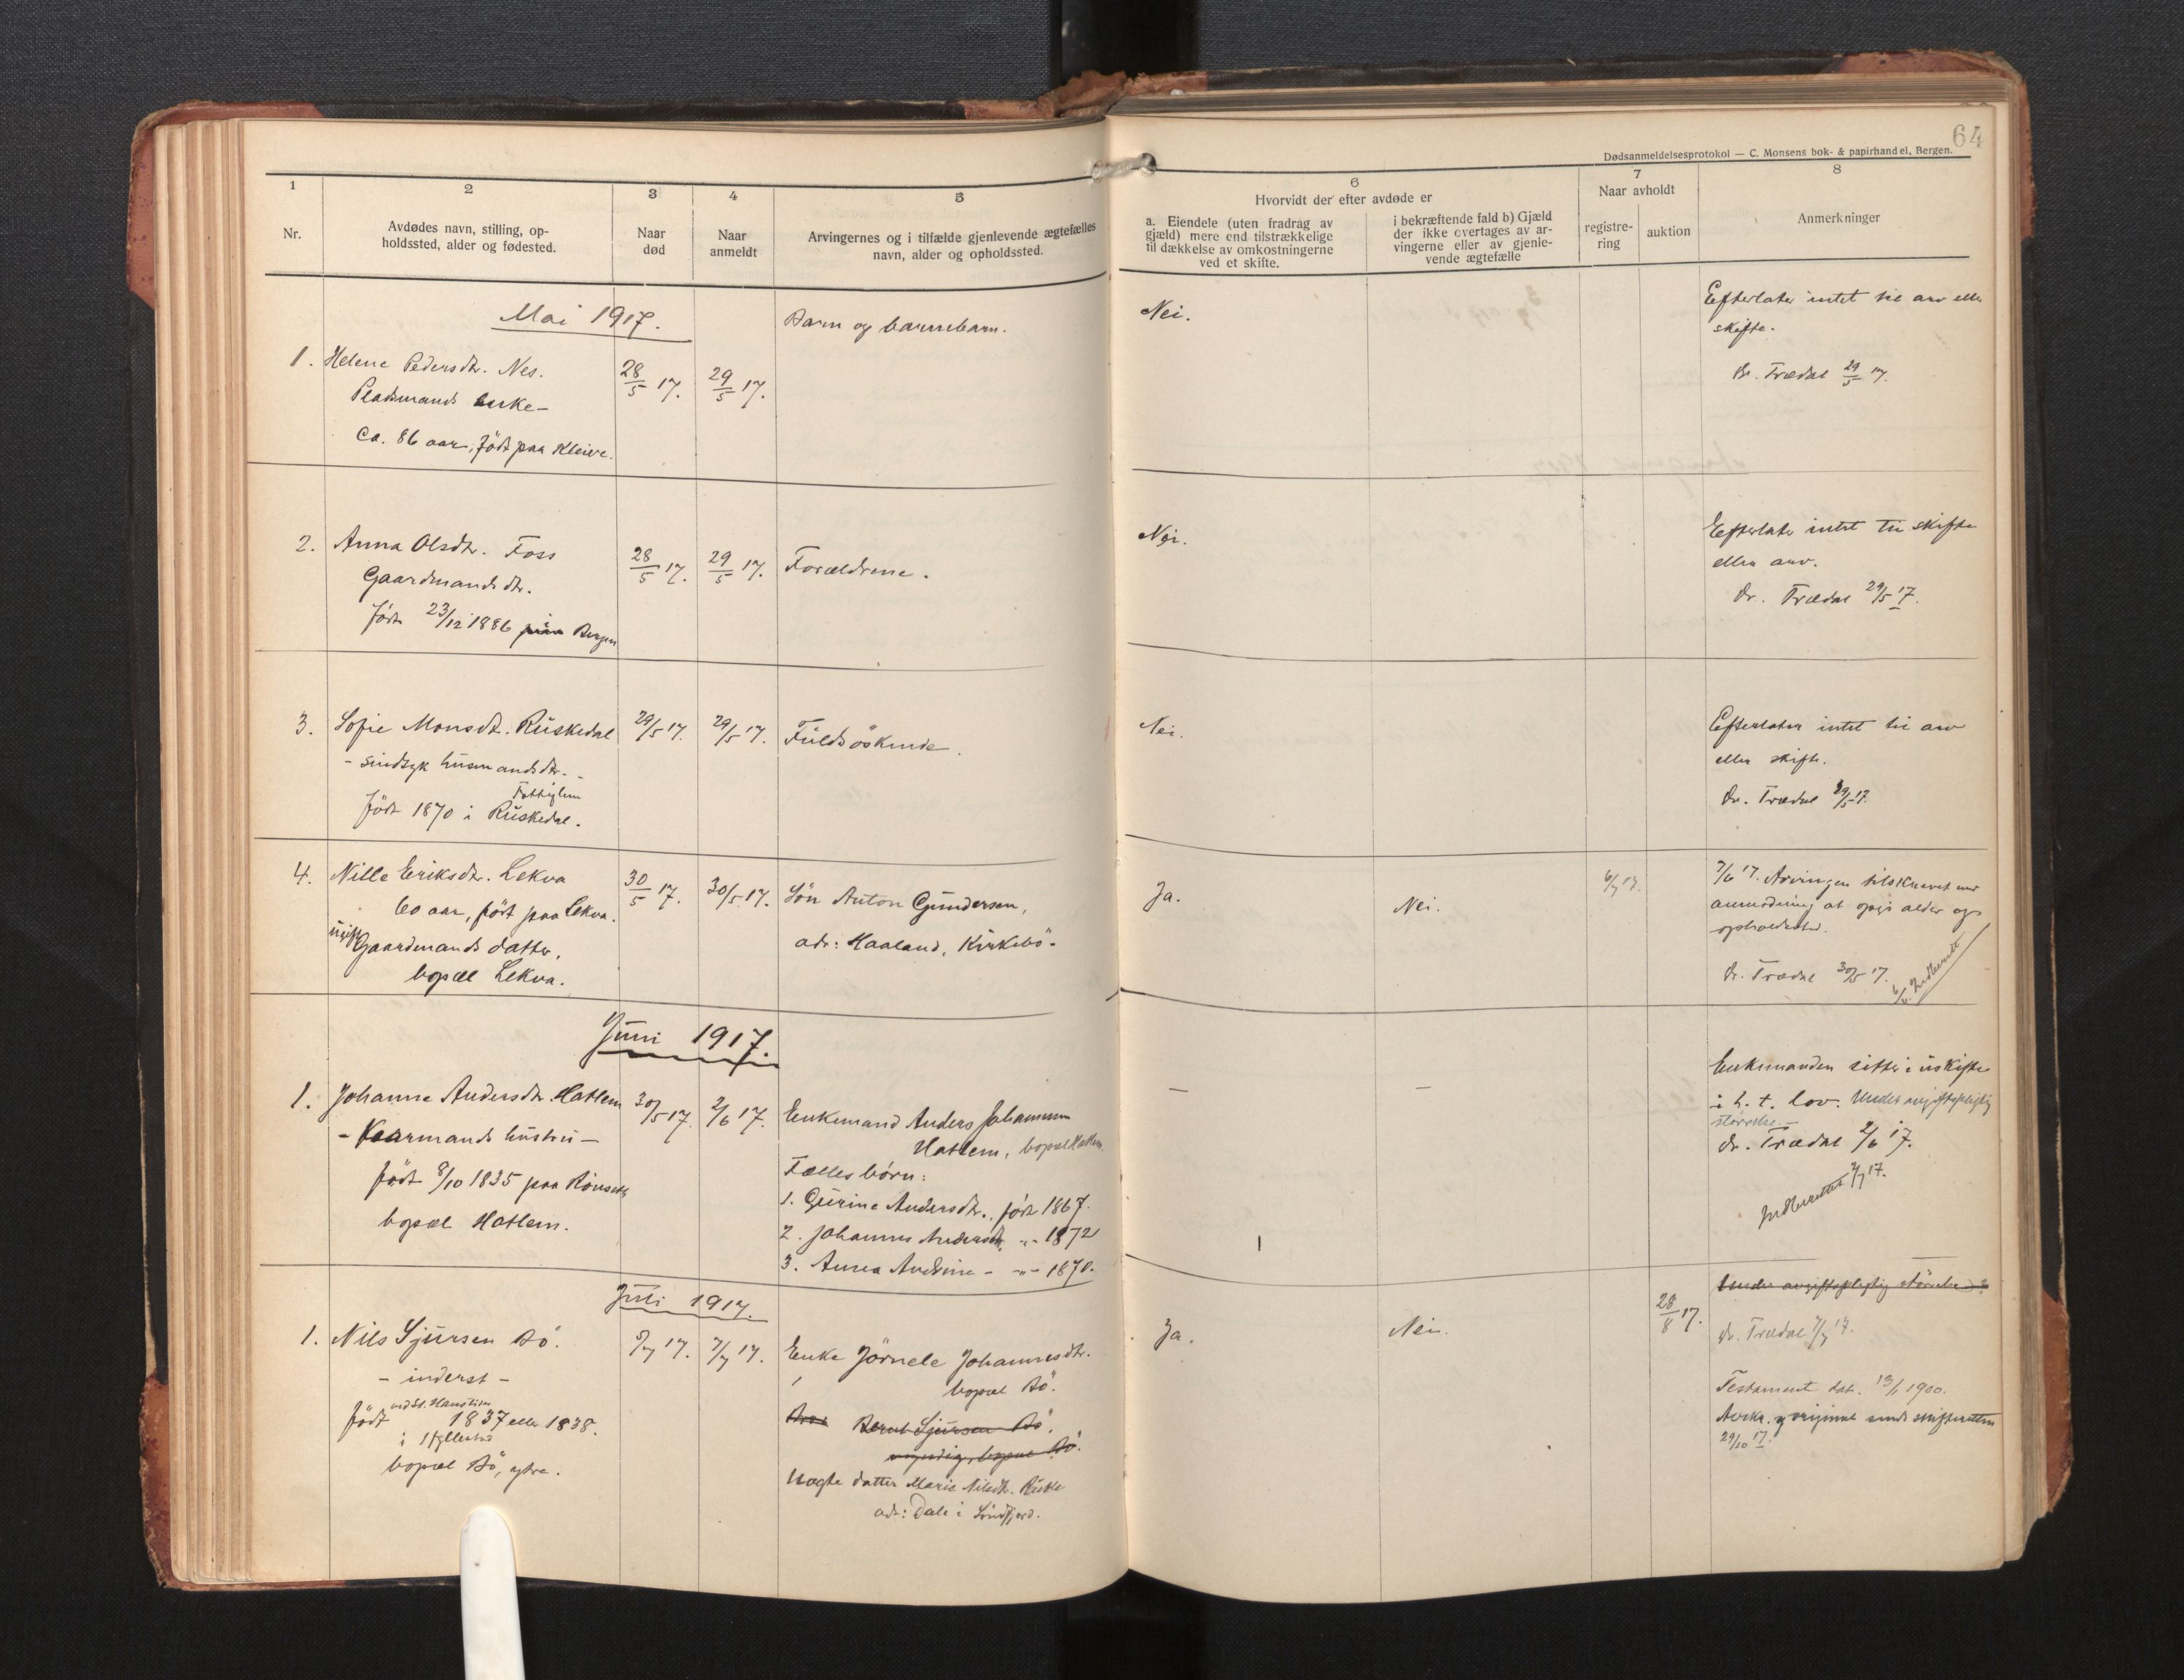 64
Dødsanmeldelsesprotokol — C. Monsens bok- & papirhandel, Bergen.
1
Nr.
2
Avdødes navn, stilling, op-
holdssted, alder og fødested.
3
Naar
død
4
Naar
anmeldt
5
Arvingernes og i tilfælde gjenlevende ægtefælles
navn, alder og opholdssted.
6
Hvorvidt der efter avdøde er
a. Eiendele (uten fradrag av
gjæld) mere end tilstrækkelige
til dækkelse av omkostningerne
ved et skifte.
i bekræftende fald b) Gjæld
der ikke overtages av ar-
vingerne eller av gjenle-
vende ægtefælle
7
Naar avholdt
registre-
ring
auktion
8
Anmerkninger
Mai 1917.
1. Helene Pedersdtr. Nes.
Pladsmands enke –
Ca. 86 aar, født paa Kleive.
28/5 17.
29/5 17.
Barn og barnebarn.
Nei.
Efterlater intet til arv eller
skifte.
Dr. Trædal 29/5 17.
2. Anna Olsdtr. Foss
Gaardmandsdtr.
født 23/12 1886 Bergen
28/5 17.
29/5 17.
Forældrene.
Nei.
Efterlater intet til skifte
eller arv.
Dr. Trædal 29/5 17.
3. Sofie Monsdtr. Ruskedal
– sindsyk husmandsdtr. –
Fattiglem
født 1870 i Ruskedal.
29/5 17.
29/5 17.
Fuldsøskende.
Nei.
Efterlater intet til arv
eller skifte.
Dr. Trædal 29/5 17.
4. Nille Eriksdtr. Lekva
60 aar, født paa Lekva.
ugift
Gaardmands datter,
bopæl Lekva.
30/5 17.
30/5 17.
Søn Anton Gundersen,
adr: Haaland, Kirkebø.
Ja.
Nei.
6/7 17.
7/6 17. Arvingen tilskrevet med
anmodning at opgi alder og
opholdssted.
Dr. Trædal 30/5 17.
Indberett
Juni 1917.
1. Johanne Andersdtr. Hatlem
– Kaarmands hustru –
født 8/10 1835 paa
bopæl Hatlem.
30/5 17.
2/6 17.
Enkemand Anders Johannsen
Hatlem, bopæl Hatlem.
Fællesbørn:
1. Gurine Andersdtr., født 1867.
2. Johannes Andersen, -"- 1872
3. Anna Andrine - -"- 1870.
–
–
Enkemanden sitter i uskifte
i h. t. lov. Under avgiftspligtig
størrelse. –
Dr. Trædal 2/6 17.
Indberettet 2/7 17.
Juli 1917.
1. Nils Sjursen Bø.
– inderst –
ved St. Hanstider
født 1837 eller 1838.
i Hyllestad
bopæl Bø, ytre.
5/7 17.
7/7 17.
Enke Jørnele Johannesdtr.
bopæl Bø.
Bernt Sjursen Bø,
myndig, bopæl Bø.
Uægte datter Marie Nilsdtr.
adr: Dale i Søndfjord.
Ja.
Nei.
28/8 17.
Under avgiftspligtig størrelse
Dr. Trædal 7/7 17.
Testament dat. 13/1 1900.
originat sendt skifteretten
29/10 17.